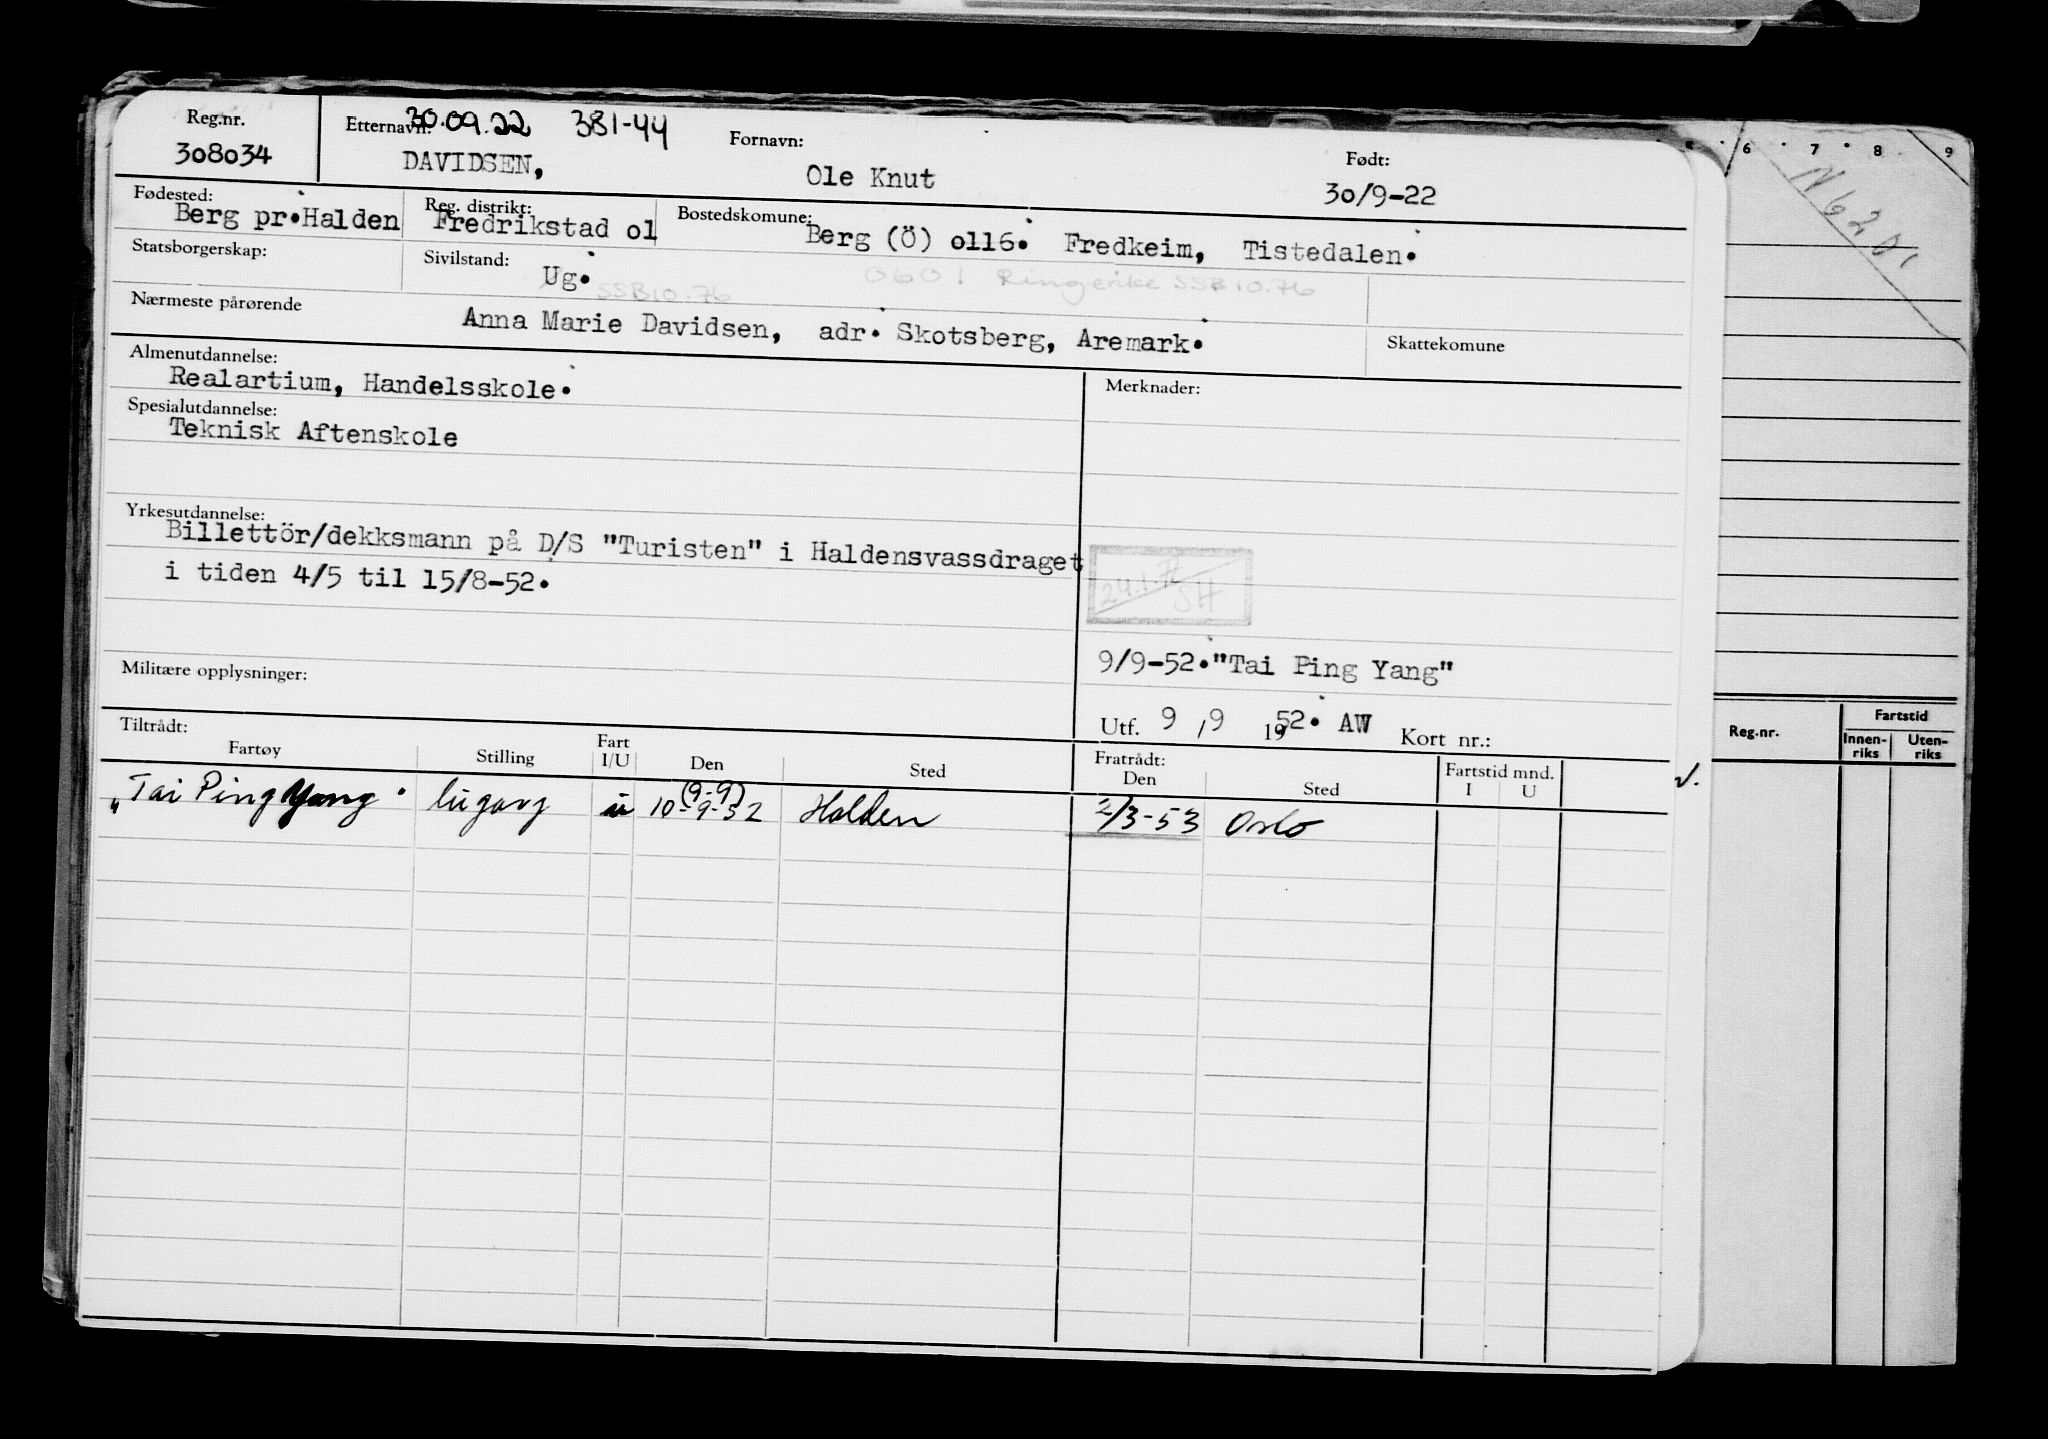 Reg.nr. 308034
Etternavn: 30.09.22 381-44
DAVIDSEN,
Fornavn: Ole Knut
Født: 30/9-22
Fødested: Berg pr. Halden
Reg. distrikt: Fredrikstad ol
Bostedskomune: Berg (Ö) o116. Fredheim, Tistedalen.
Statsborgerskap:
Sivilstand: Ug.
SSB10.76
0601 Ringerike SSB 10.76
Nærmeste pårørende Anna Marie Davidsen, adr. Skotsberg, Aremark.
Skattekomune
Almenutdannelse: Realartium, Handelsskole.
Merknader:
Spesialutdannelse: Teknisk Aftenskole
Yrkesutdannelse:
Billettör/dekksmann på D/S "Turisten" i Haldensvassdraget
i tiden 4/5 til 15/8-52.
24.1.77 SH
9/9-52. "Tai Ping Yang"
Militære opplysninger:
Utf. 9 / 9 1952. AW Kort nr.:
Tiltrådt: Fratrådt:
Fartøy Stilling Fart I/U Den Sted Den Sted Fartstid mnd. I U
"Tai Ping Yang" lugarg u 10-9-52 (9-9) Halden 2/3-53 Oslo
6 7 8 9
Reg.nr. Fartstid
Innen-riks Uten-riks